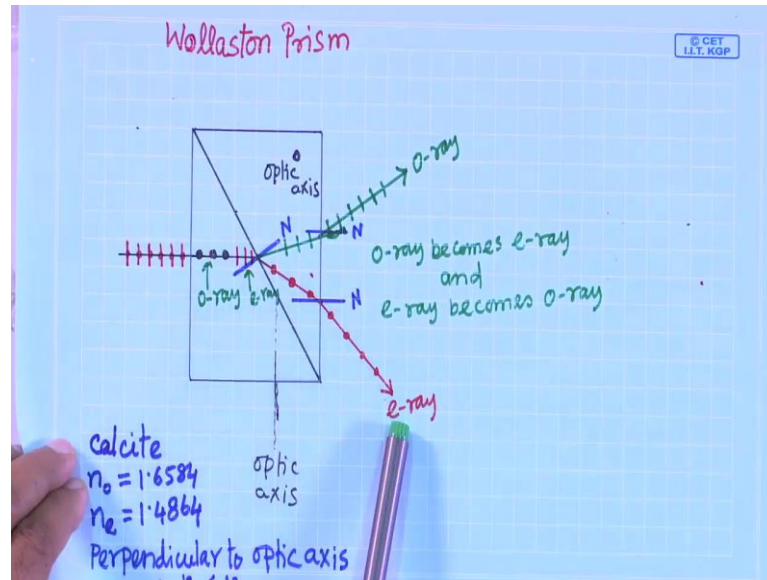 Wollaston Prism
© CET
I.I.T. KGP
optic
axis
O-ray
N
N
O-ray becomes e-ray
and
e-ray becomes O-ray
O-ray
e-ray
N
e-ray
optic
axis
Calcite
n₀ = 1.6584
nₑ = 1.4864
Perpendicular to optic axis